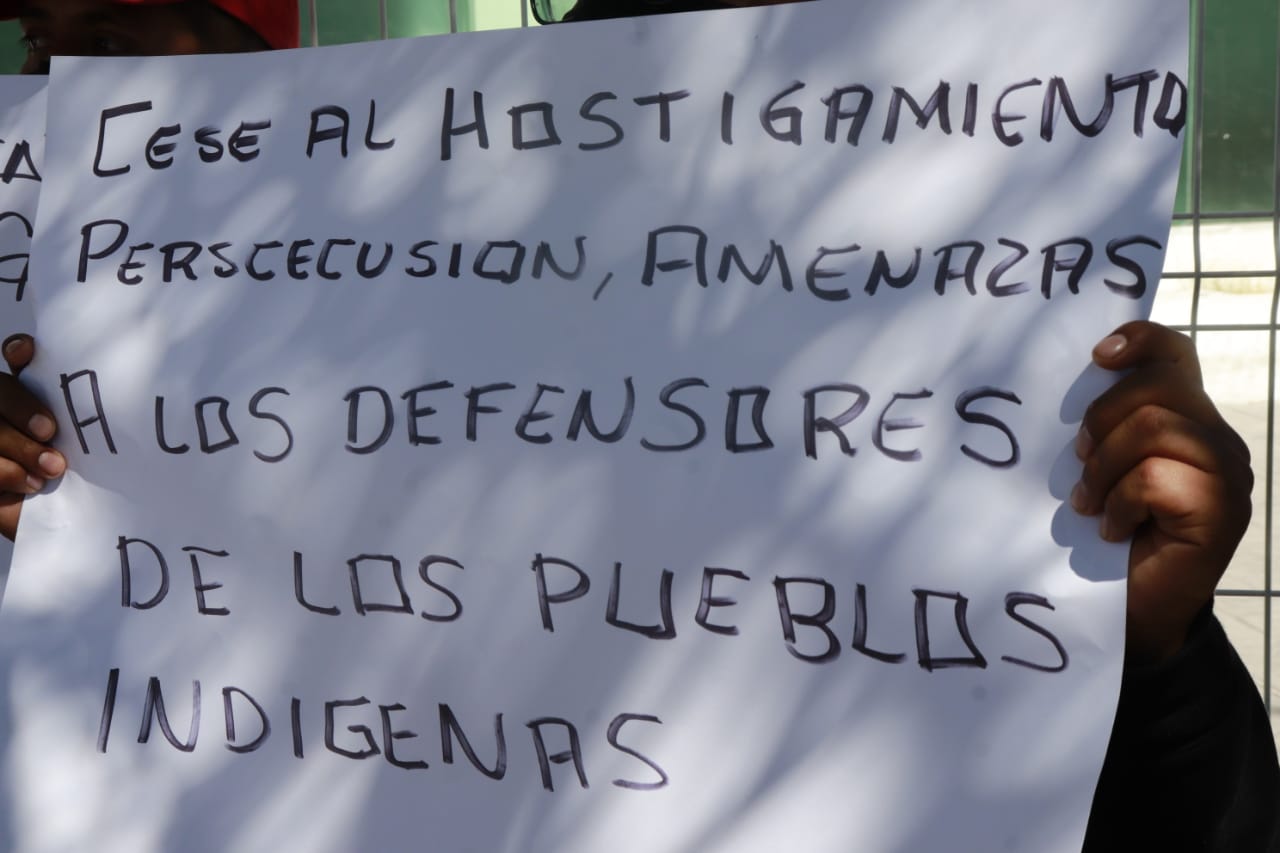 CESE AL HOSTIGAMIENTO
PERSCECUSION, AMENAZAS
A LOS DEFENSORES
DE LOS PUEBLOS
INDIGENAS